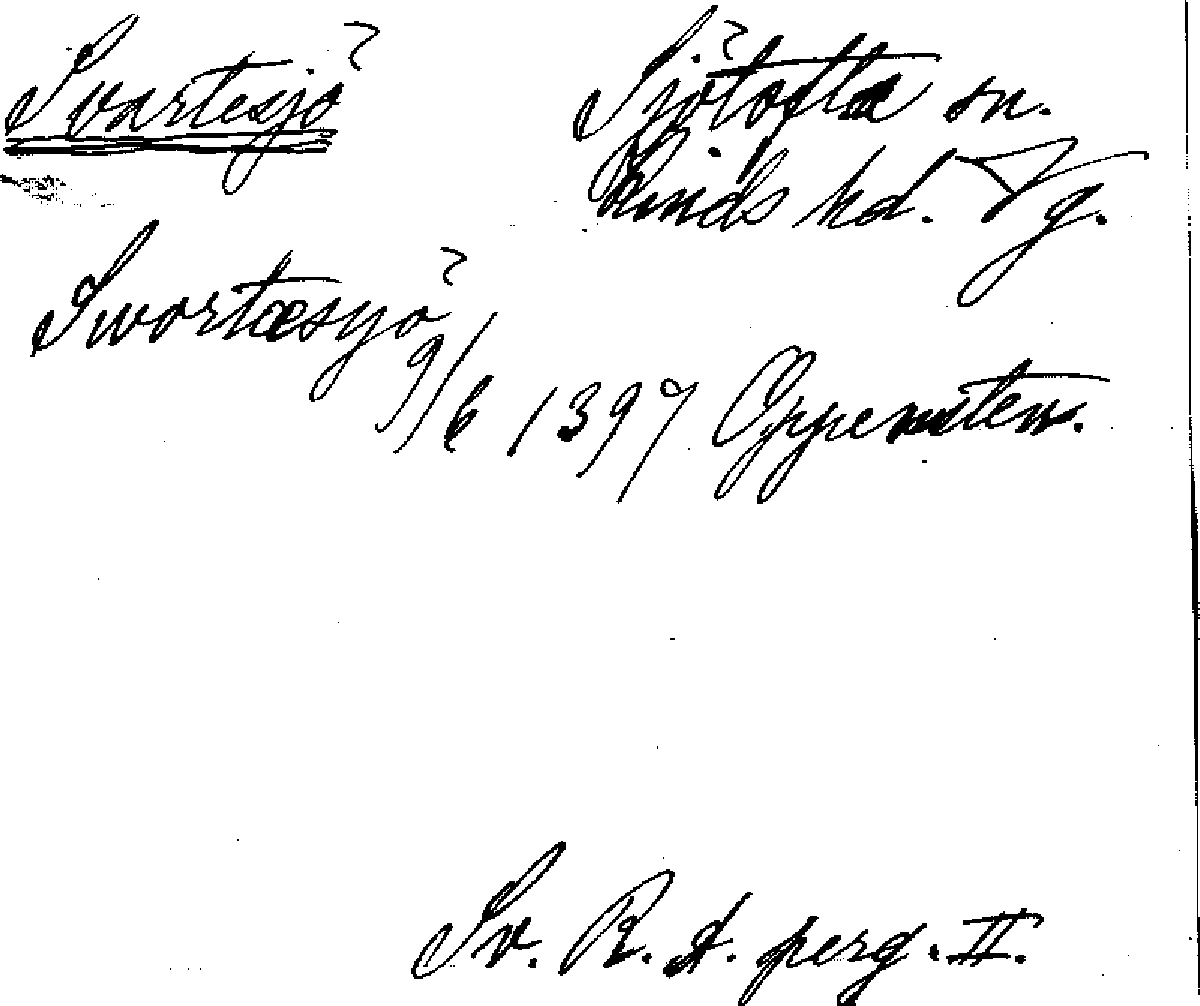 Svartesjö
Sjötofta sn.
Kinds hd. Vg.
Swortæsyö
9/6 1397 Oppensten.
Sv. R. A. perg. II.